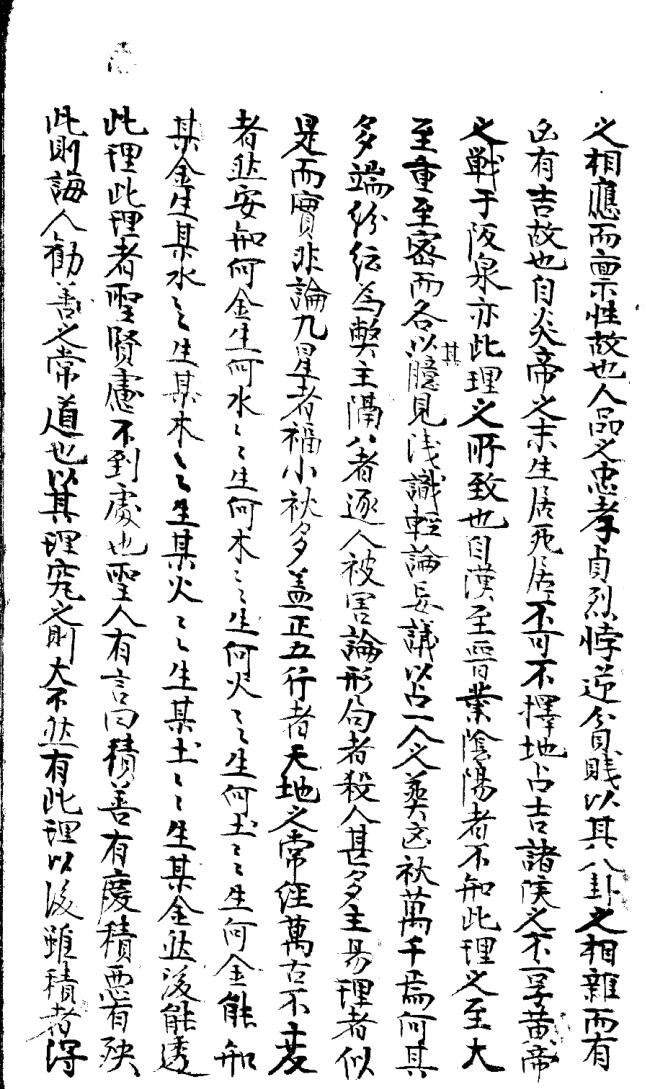 之相應而稟性故也人品之忠孝貞烈悖逆貧賤以其八卦之相雜而有
凶有吉故也自炎帝之末生居死居不可不擇地占吉諸侯之不孚黃帝
之戰于阪泉亦此理之所致也自漢至晉業陰陽者不知此理之至大
至重至密而各以其臆見淺識輕論妄議以占一人之葬凶袂萬千焉何其
多端紛紜為弊主隔八者逐人被害論形局者殺人甚多主易理者似
是而實非論九星者福小袂多盖正五行者天地之常經萬古不變
者然安知何金生何水〻生何木〻生何火〻生何土〻生何金能知
某金生某水〻生某木〻生某火〻生某土〻生某金然後能透
此理此理者聖賢慮不到處也聖人有言曰積善有慶積悪有殃
此則誨人勸善之常道也以其理究之則大不然有此理以後雖積者得